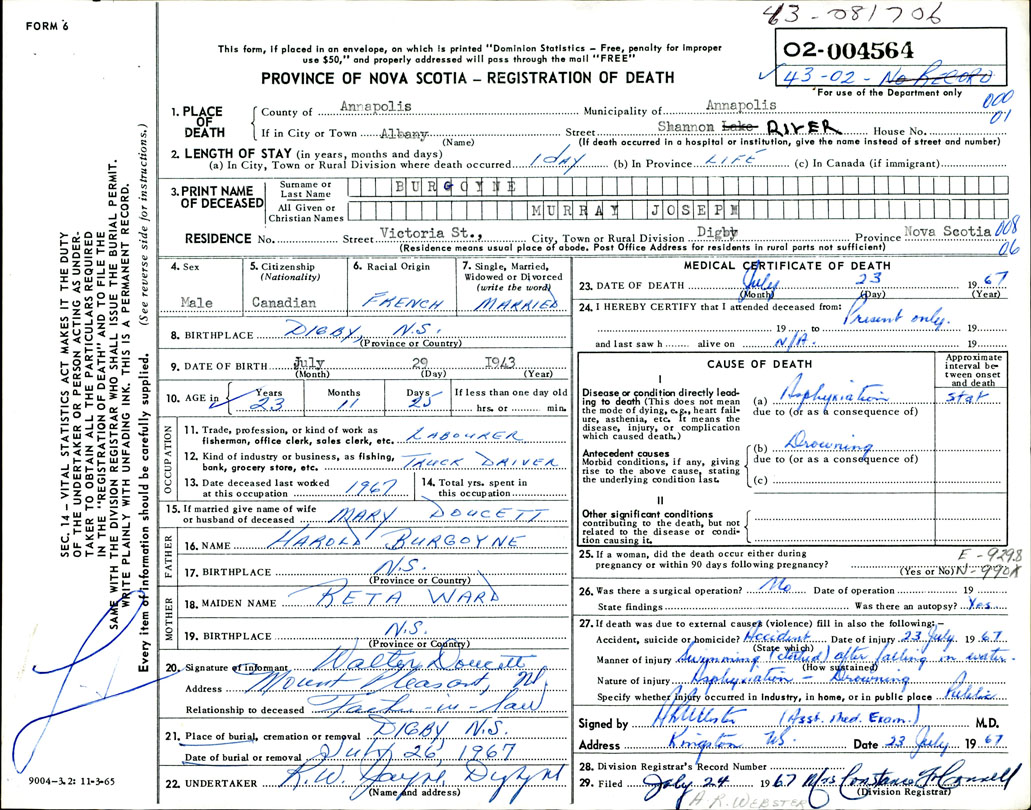 FORM 6
43-081706
This form, if placed in an envelope, on which is printed "Dominion Statistics – Free, penalty for improper
use $50," and properly addressed will pass through the mail "FREE"
02-004564
PROVINCE OF NOVA SCOTIA – REGISTRATION OF DEATH
✓ 43-02 - No RECORD
*For use of the Department only
000
01
1. PLACE OF DEATH
County of Annapolis Municipality of Annapolis
If in City or Town Albany Street Shannon Lake RIVER House No.
(Name) (If death occurred in a hospital or institution, give the name instead of street and number)
2. LENGTH OF STAY (in years, months and days)
(a) In City, Town or Rural Division where death occurred 1 DAY (b) In Province LIFE (c) In Canada (if immigrant)
3. PRINT NAME OF DECEASED
Surname or Last Name BURGOYNE
All Given or Christian Names MURRAY JOSEPH
RESIDENCE No. Street Victoria St., City, Town or Rural Division Digby Province Nova Scotia 008
(Residence means usual place of abode. Post Office Address for residents in rural parts not sufficient) 06
4. Sex Male
5. Citizenship (Nationality) Canadian
6. Racial Origin FRENCH
7. Single, Married, Widowed or Divorced (write the word) MARRIED
8. BIRTHPLACE DIGBY, N.S.
(Province or Country)
9. DATE OF BIRTH July 29 1943
(Month) (Day) (Year)
10. AGE in ✓ Years 23 Months 11 Days 25 If less than one day old
hrs. or min.
OCCUPATION
11. Trade, profession, or kind of work as fisherman, office clerk, sales clerk, etc. LABOURER
12. Kind of industry or business, as fishing, bank, grocery store, etc. TRUCK DRIVER
13. Date deceased last worked at this occupation 1967
14. Total yrs. spent in this occupation
15. If married give name of wife or husband of deceased MARY DOUCETT
FATHER
16. NAME HAROLD BURGOYNE
17. BIRTHPLACE N.S.
(Province or Country)
MOTHER
18. MAIDEN NAME RETA WARD
19. BIRTHPLACE N.S.
(Province or Country)
20. Signature of informant Walter Doucett
Address Mount Pleasant,
Relationship to deceased Father-in-law
21. Place of burial, cremation or removal DIGBY N.S.
Date of burial or removal July 26, 1967
22. UNDERTAKER R.W. Jayne, Digby
(Name and address)
MEDICAL CERTIFICATE OF DEATH
23. DATE OF DEATH July 23 1967
(Month) (Day) (Year)
24. I HEREBY CERTIFY that I attended deceased from: Present only.
19 to 19
and last saw h alive on N/A. 19
CAUSE OF DEATH
Approximate interval between onset and death
I
Disease or condition directly leading to death (This does not mean the mode of dying, e.g., heart failure, asthenia, etc. It means the disease, injury, or complication which caused death.)
(a) Asphyxiation stat
due to (or as a consequence of)
Antecedent causes
Morbid conditions, if any, giving rise to the above cause, stating the underlying condition last.
(b) Drowning
due to (or as a consequence of)
(c)
II
Other significant conditions
contributing to the death, but not related to the disease or condition causing it.
25. If a woman, did the death occur either during
pregnancy or within 90 days following pregnancy? E-929.8
(Yes or No) N-990X
26. Was there a surgical operation? No Date of operation 19
State findings Was there an autopsy? Yes
27. If death was due to external causes (violence) fill in also the following:–
Accident, suicide or homicide? Accident Date of injury 23 July 1967
(State which)
Manner of injury Swimming (clothed) after falling in water.
(How sustained)
Nature of injury Asphyxiation – Drowning
Specify whether injury occurred in industry, in home, or in public place Public
Signed by A R Webster (Asst. Med. Exam.) M.D.
Address Kingston NS. Date 23 July 1967
28. Division Registrar's Record Number
29. Filed July 24 1967 Mrs Constance O'Connell
(Division Registrar)
A.R. WEBSTER
SEC. 14 – VITAL STATISTICS ACT MAKES IT THE DUTY
OF THE UNDERTAKER OR PERSON ACTING AS UNDER-
TAKER TO OBTAIN ALL THE PARTICULARS REQUIRED
IN THE "REGISTRATION OF DEATH" AND TO FILE THE
SAME WITH THE DIVISION REGISTRAR WHO SHALL ISSUE THE BURIAL PERMIT.
WRITE PLAINLY WITH UNFADING INK. THIS IS A PERMANENT RECORD.
Every item of information should be carefully supplied. (See reverse side for instructions.)
9004-3.2: 11-3-65